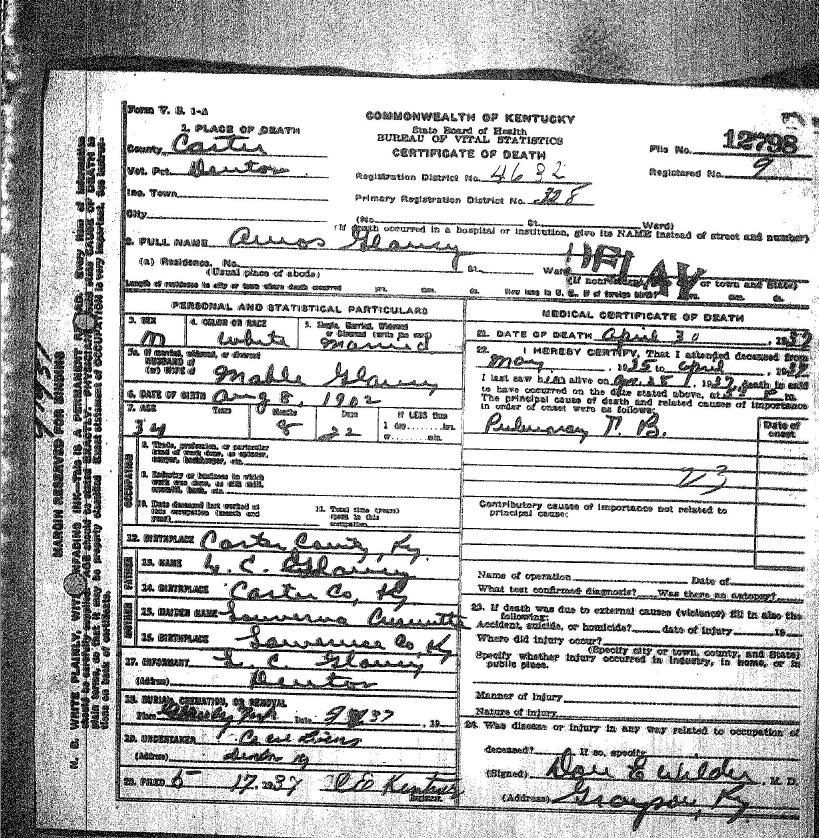 Form V. S. 1-A
COMMONWEALTH OF KENTUCKY
State Board of Health
BUREAU OF VITAL STATISTICS
CERTIFICATE OF DEATH
File No. 12798
Registered No. 9
1. PLACE OF DEATH
County Carter
Vot. Pct. Denton
Inc. Town
City
Registration District No. 4632
Primary Registration District No. 328
(No. St. Ward)
(If death occurred in a hospital or institution, give its NAME instead of street and number)
2. FULL NAME Amos Glancy
(a) Residence. No. St. Ward
(Usual place of abode) (If nonresident, or town and State)
DELAY
Length of residence in city or town where death occurred yrs. mos. ds. How long in U. S., if of foreign birth? yrs. mos. ds.
PERSONAL AND STATISTICAL PARTICULARS
3. SEX M
4. COLOR OR RACE White
5. Single, Married, Widowed or Divorced (write the word) Married
5a. If married, widowed, or divorced
HUSBAND of
(or) WIFE of Mable Glancy
6. DATE OF BIRTH Aug 8, 1902
7. AGE Years 34 Months 8 Days 22 If LESS than 1 day, hrs. or min.
OCCUPATION
8. Trade, profession, or particular kind of work done, as spinner, sawyer, bookkeeper, etc.
9. Industry or business in which work was done, as silk mill, sawmill, bank, etc.
10. Date deceased last worked at this occupation (month and year)
11. Total time (years) spent in this occupation
12. BIRTHPLACE Carter County, Ky.
FATHER
13. NAME L. C. Glancy
14. BIRTHPLACE Carter Co, Ky
MOTHER
15. MAIDEN NAME
16. BIRTHPLACE Lawrence Co, Ky
17. INFORMANT L. C. Glancy
(Address) Denton
18. BURIAL, CREMATION, OR REMOVAL
Place Date 37, 19
19. UNDERTAKER
(Address) Denton Ky
20. FILED 5 17, 1937
Registrar.
MEDICAL CERTIFICATE OF DEATH
21. DATE OF DEATH April 30, 1937
22. I HEREBY CERTIFY, That I attended deceased from
May, 1935 to April, 1937
I last saw him alive on 28, 1937, death is said
to have occurred on the date stated above, at m.
The principal cause of death and related causes of importance
in order of onset were as follows:
Date of onset
Pulmonary T. B.
23
Contributory causes of importance not related to
principal cause:
Name of operation Date of
What test confirmed diagnosis? Was there an autopsy?
23. If death was due to external causes (violence) fill in also the
following:
Accident, suicide, or homicide? date of injury 19
Where did injury occur?
(Specify city or town, county, and State)
Specify whether injury occurred in industry, in home, or in
public place.
Manner of Injury
Nature of Injury
24. Was disease or injury in any way related to occupation of
deceased? If so, specify
(Signed) Don E Wilder, M. D.
(Address) Grayson, Ky
MARGIN RESERVED FOR BINDING